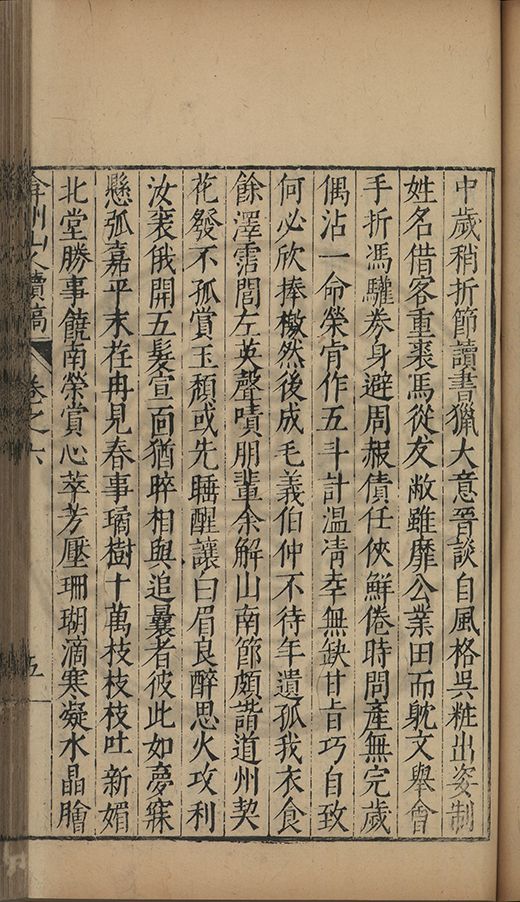 中歲稍折節讀書獵大意晉談自風格吳粧出姿制
姓名借客重裘馬從友敝雖靡公業田而躭文舉會
手折馮驩券身避周赧債任俠鮮倦時問產無完歲
偶沾一命榮肎作五斗計溫凊幸無缺甘旨巧自致
何必欣捧檄然後成毛義伯仲不待年遺孤我衣食
餘澤霑閭左英聲嘖朋輩余解山南節頗諧道州契
花發不孤賞玉頹或先睡醒讓白眉良醉思火攻利
汝裘俄開五髮宣面猶睟相與追曩者彼此如夢寐
懸弧嘉平末荏冉見春事璚樹十萬枝枝枝吐新媚
北堂勝事饒南榮賞心萃芳壓珊瑚滴寒凝水晶膾
弇州山人續稿 卷之六 五